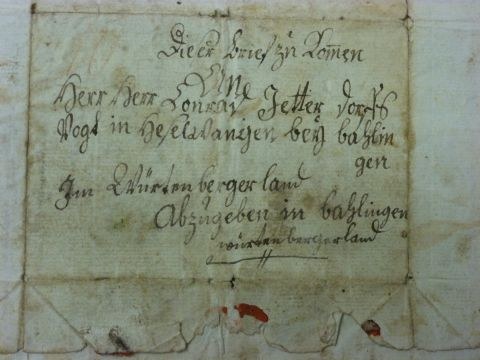 Dieer brief zu Komen
Herr Herr Conrad Jetter dorfs
Vogt in Heselwangen bey bahlin
gen
Im Würtenbergerland
Abzugeben in bahlingen
würtenbergerland